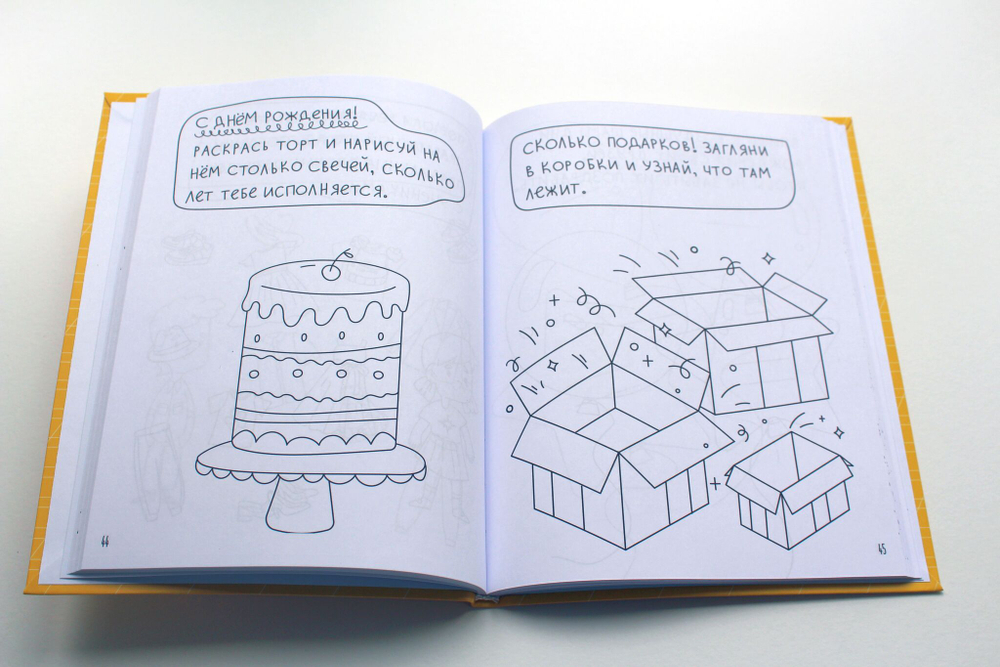 С ДНЁМ РОЖДЕНИЯ!
РАСКРАСЬ ТОРТ И НАРИСУЙ НА
НЁМ СТОЛЬКО СВЕЧЕЙ, СКОЛЬКО
ЛЕТ ТЕБЕ ИСПОЛНЯЕТСЯ.
44
СКОЛЬКО ПОДАРКОВ! ЗАГЛЯНИ
В КОРОБКИ И УЗНАЙ, ЧТО ТАМ
ЛЕЖИТ.
45